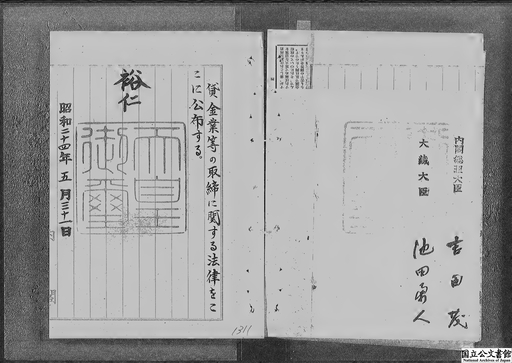 貸金業等の取締に関する法律をこ
こに公布する。
裕仁
天皇
御璽
昭和二十四年五月三十一日
内閣総理大臣
吉田茂
大蔵大臣
池田勇人
1311
国立公文書館
National Archives of Japan